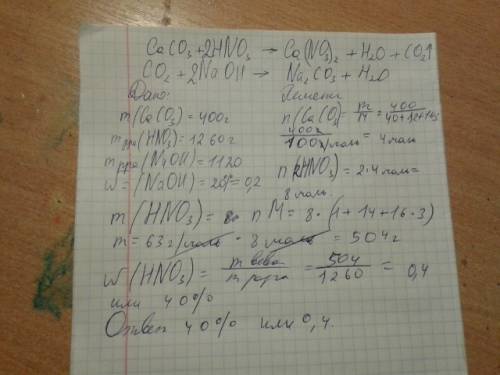 CaCO3+2HNO3 → Ca(NO3)2 + H2O + CO2↑
CO2 + 2NaOH → Na2CO3 + H2O
Дано:
m(CaCO3)=400г
m р-ра(HNO3)=1260г
m р-ра(NaOH)=1120
w=(NaOH)=20%=0,2
n(CaCO3)=m/M=400/40+12+16·3
400г/100г/моль = 4 моль
n(2HNO3)=2·4 моль=
8 моль.
m(HNO3)= n M= 8·(1+14+16·3)
m=63г/моль · 8 моль = 504г
w(HNO3)= m в-ва/m р-ра = 504/1260 = 0,4
или 40%
Ответ 40% или 0,4.